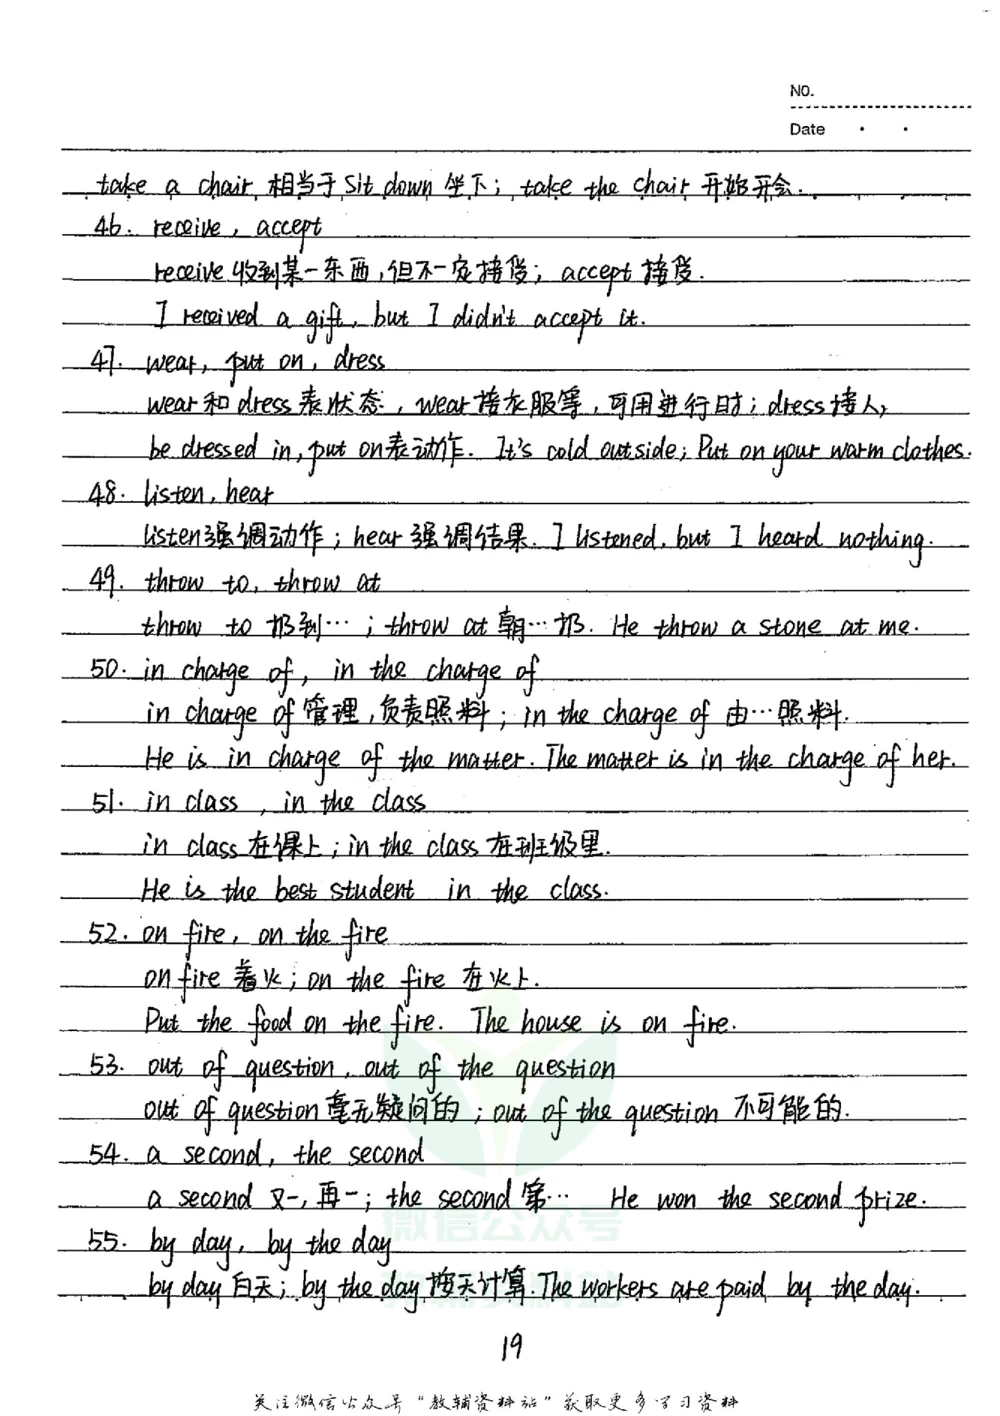 NO.
Date
take a chair 相当于 sit down 坐下; take the chair 开始开会.
46. receive, accept
receive 收到某一东西,但不一定接受; accept 接受.
I received a gift, but I didn't accept it.
47. wear, put on, dress
wear和dress表状态, wear接衣服等,可用进行时; dress接人,
be dressed in, put on表动作. It's cold outside; Put on your warm clothes.
48. listen, hear
listen强调动作; hear强调结果. I listened, but I heard nothing.
49. throw to, throw at
throw to 扔到…; throw at 朝…扔. He throw a stone at me.
50. in charge of, in the charge of
in charge of 管理,负责照料; in the charge of 由…照料.
He is in charge of the matter. The matter is in the charge of her.
51. in class, in the class
in class 在课上; in the class 在班级里.
He is the best student in the class.
52. on fire, on the fire
on fire 着火; on the fire 在火上.
Put the food on the fire. The house is on fire.
53. out of question, out of the question
out of question 毫无疑问的; out of the question 不可能的.
54. a second, the second
a second 又一,再一; the second 第… He won the second prize.
微信公众号
55. by day, by the day
by day 白天; by the day 按天计算. The workers are paid by the day.
教辅资料站
19
关注微信公众号"教辅资料站"获取更多学习资料